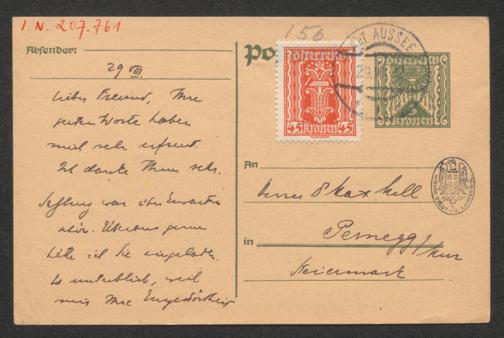 I. N. 207.761
156
Absender:
29 VIII
Lieber Freund, Ihre
guten Worte haben
mich sehr erfreut.
Ich danke Ihnen sehr.
war über Erwarten
schön. Überaus gerne
hätte ich Sie eingeladen.
Es unterblieb, weil
mir Ihre
Po
österreich
45 kronen 45
AUSSEE
29.
kronen
An
Herrn Max Mell
in Pernegg/Mur
Steiermark